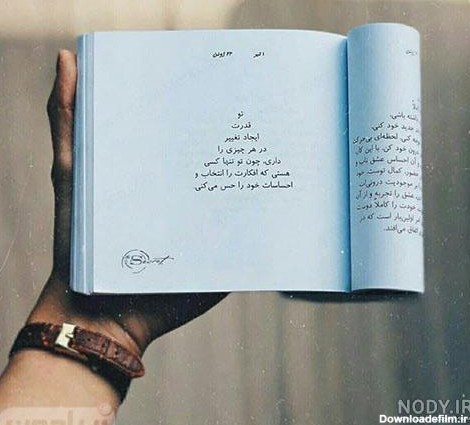 ۱ تیر
۲۲ ژوئن
تو
قدرت
ایجاد تغییر
در هر چیزی را
داری، چون تو تنها کسی
هستی که افکارت را انتخاب و
احساسات خود را حس می‌کنی.
داشته باشی.
جدید خود کنی.
کنی. لحظه‌ای بی‌حرکت
خود کن. با این کار
آن احساس عشق ناب و
حضور، کمال توست. خو
بر موجودیت درونی‌ات
عشق را تجربه و از آن
خودت را کاملاً دوست
اولین‌بار است که در
اتفاق می‌افتد.
NODY.IR
Downloadefilm.ir